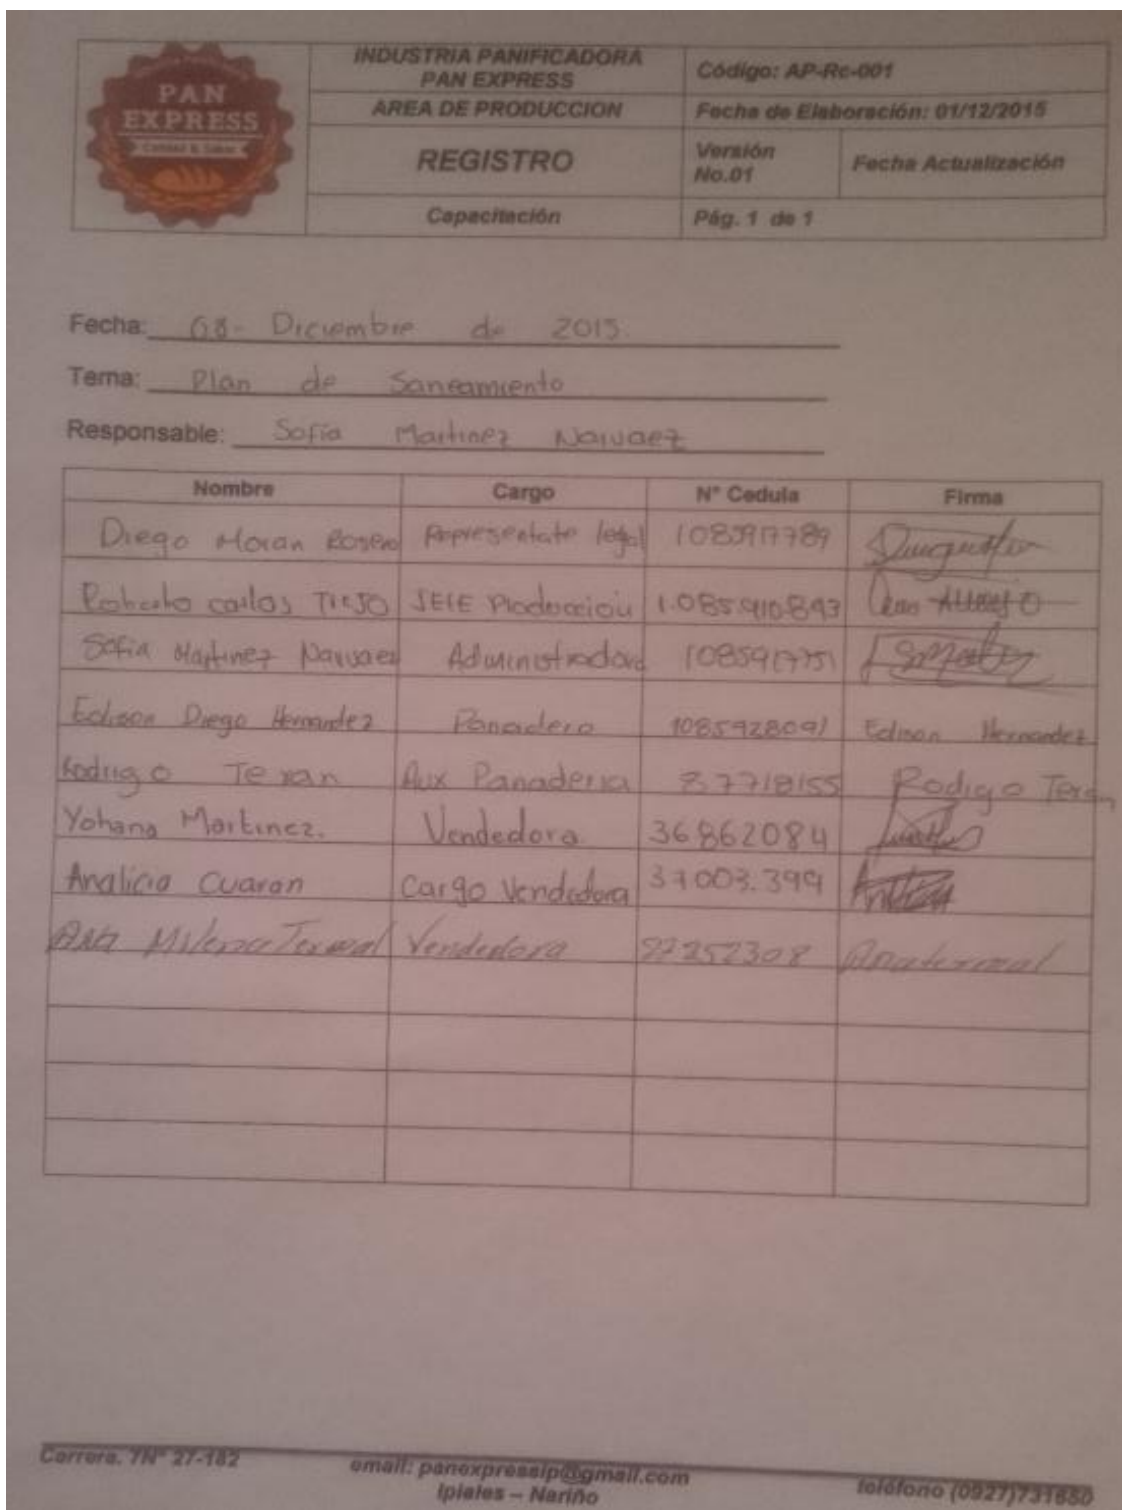 PAN
EXPRESS
Calidad & Sabor
INDUSTRIA PANIFICADORA
PAN EXPRESS
Código: AP-Rc-001
AREA DE PRODUCCION
Fecha de Elaboración: 01/12/2015
REGISTRO
Versión
No.01
Fecha Actualización
Capacitación
Pág. 1 de 1
Fecha: 08- Diciembre de 2015.
Tema: Plan de Saneamiento
Responsable: Sofia Martinez Narvaez
Nombre Cargo N° Cedula Firma
Diego Moran Rosero Representate legal 1085917789
Roberto carlos JEFE Producciòn 1.085.910.893
Sofia Martinez Narvaez Administradora 1085917751
Edison Diego Hernandez Panadero 1085928091 Edison Hernandez
Rodrigo Teran Aux Panaderia 87718155 Rodigo Teran
Yohana Martinez. Vendedora 36862084
Analicia Cuaran Cargo Vendedora 37003.399
Ana Milena Termal Vendedora 27252308 Anatermal
Carrera. 7N° 27-182
email: panexpressip@gmail.com
Ipiales – Nariño
teléfono (0927)731650